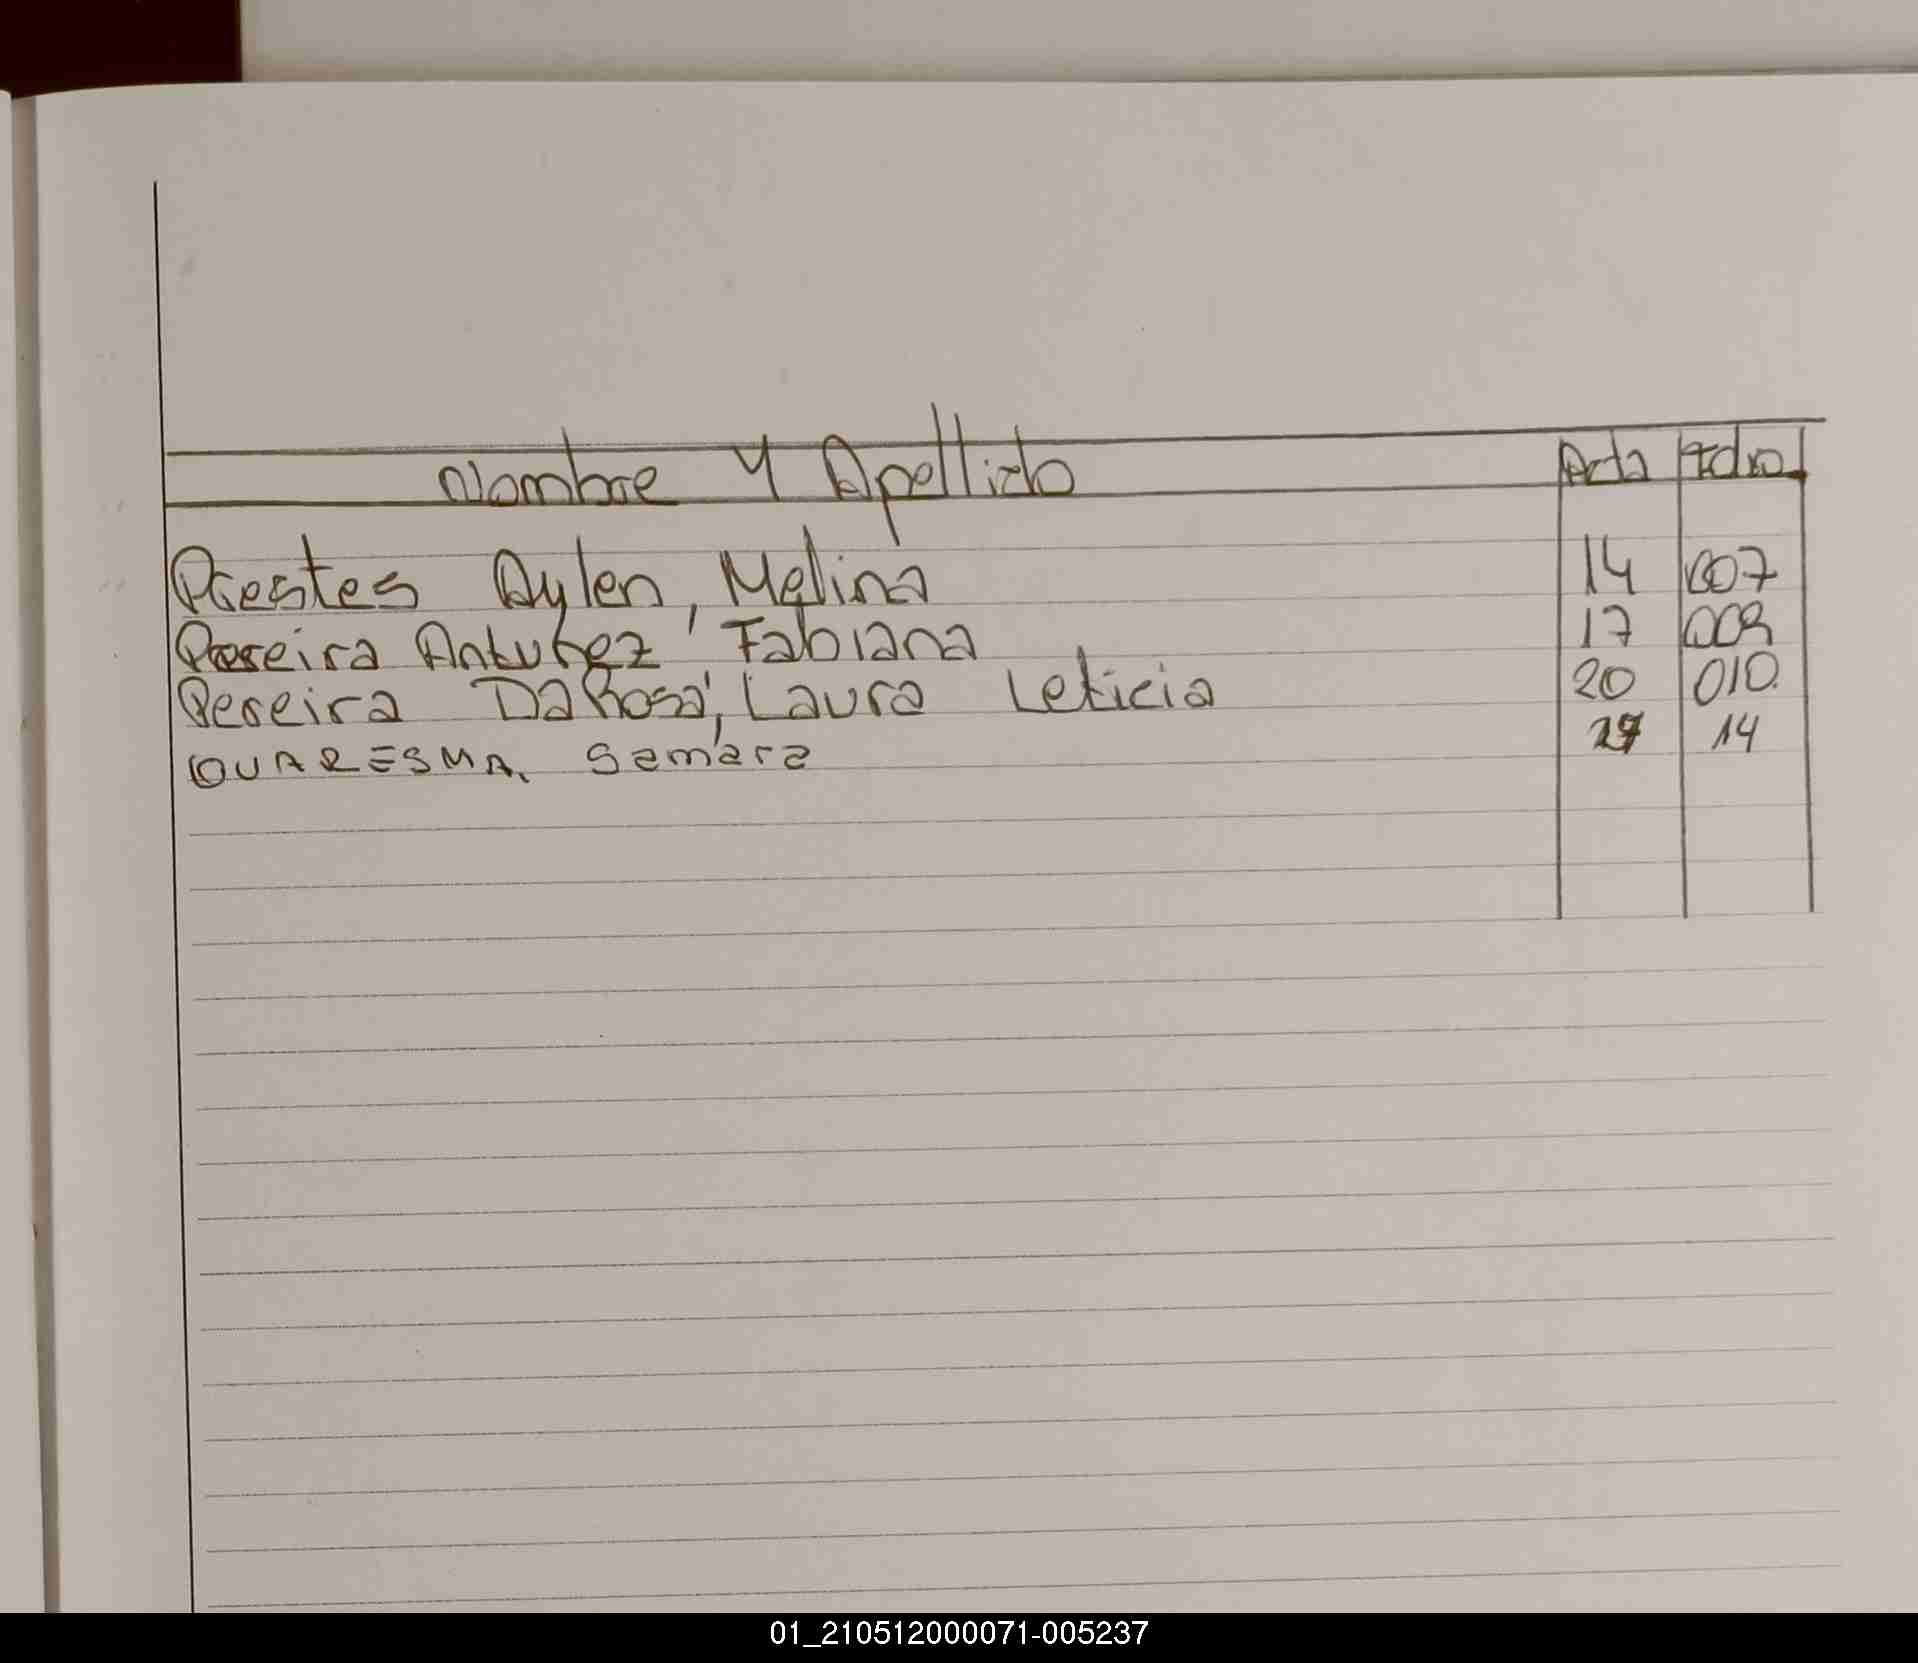 Nombre Y Apellido Acta Folio
Prestes Aylen, Melina 14 007
Pereira Antunez, Fabiana 17 009
Pereira Da Rosa, Laura Leticia 20 010.
QUARESMA, Samara 14
01_210512000071-005237